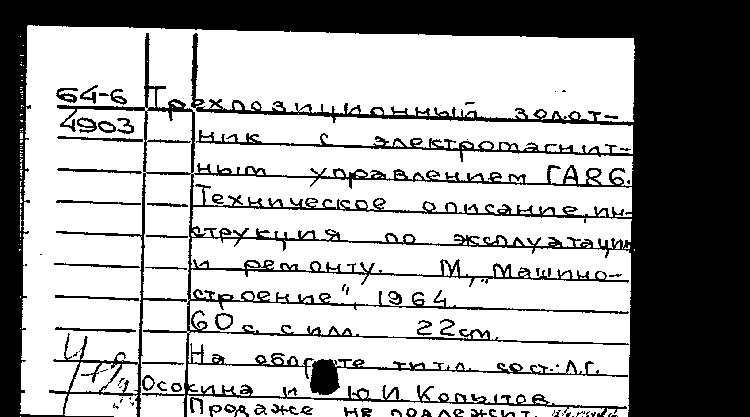 64-6 Трехпозиционный золот-
4903 ник с электромагнит-
ным управлением ГА86.
Техническое описание, ин-
струкция по эксплуатации
и ремонту. М., "Машино-
строение", 1964.
60 с. с илл. 22 см.
На обороте тит. л. сост.: Л.Г.
Осокина и Ю.И. Копытов.
Продаже не подлежит.